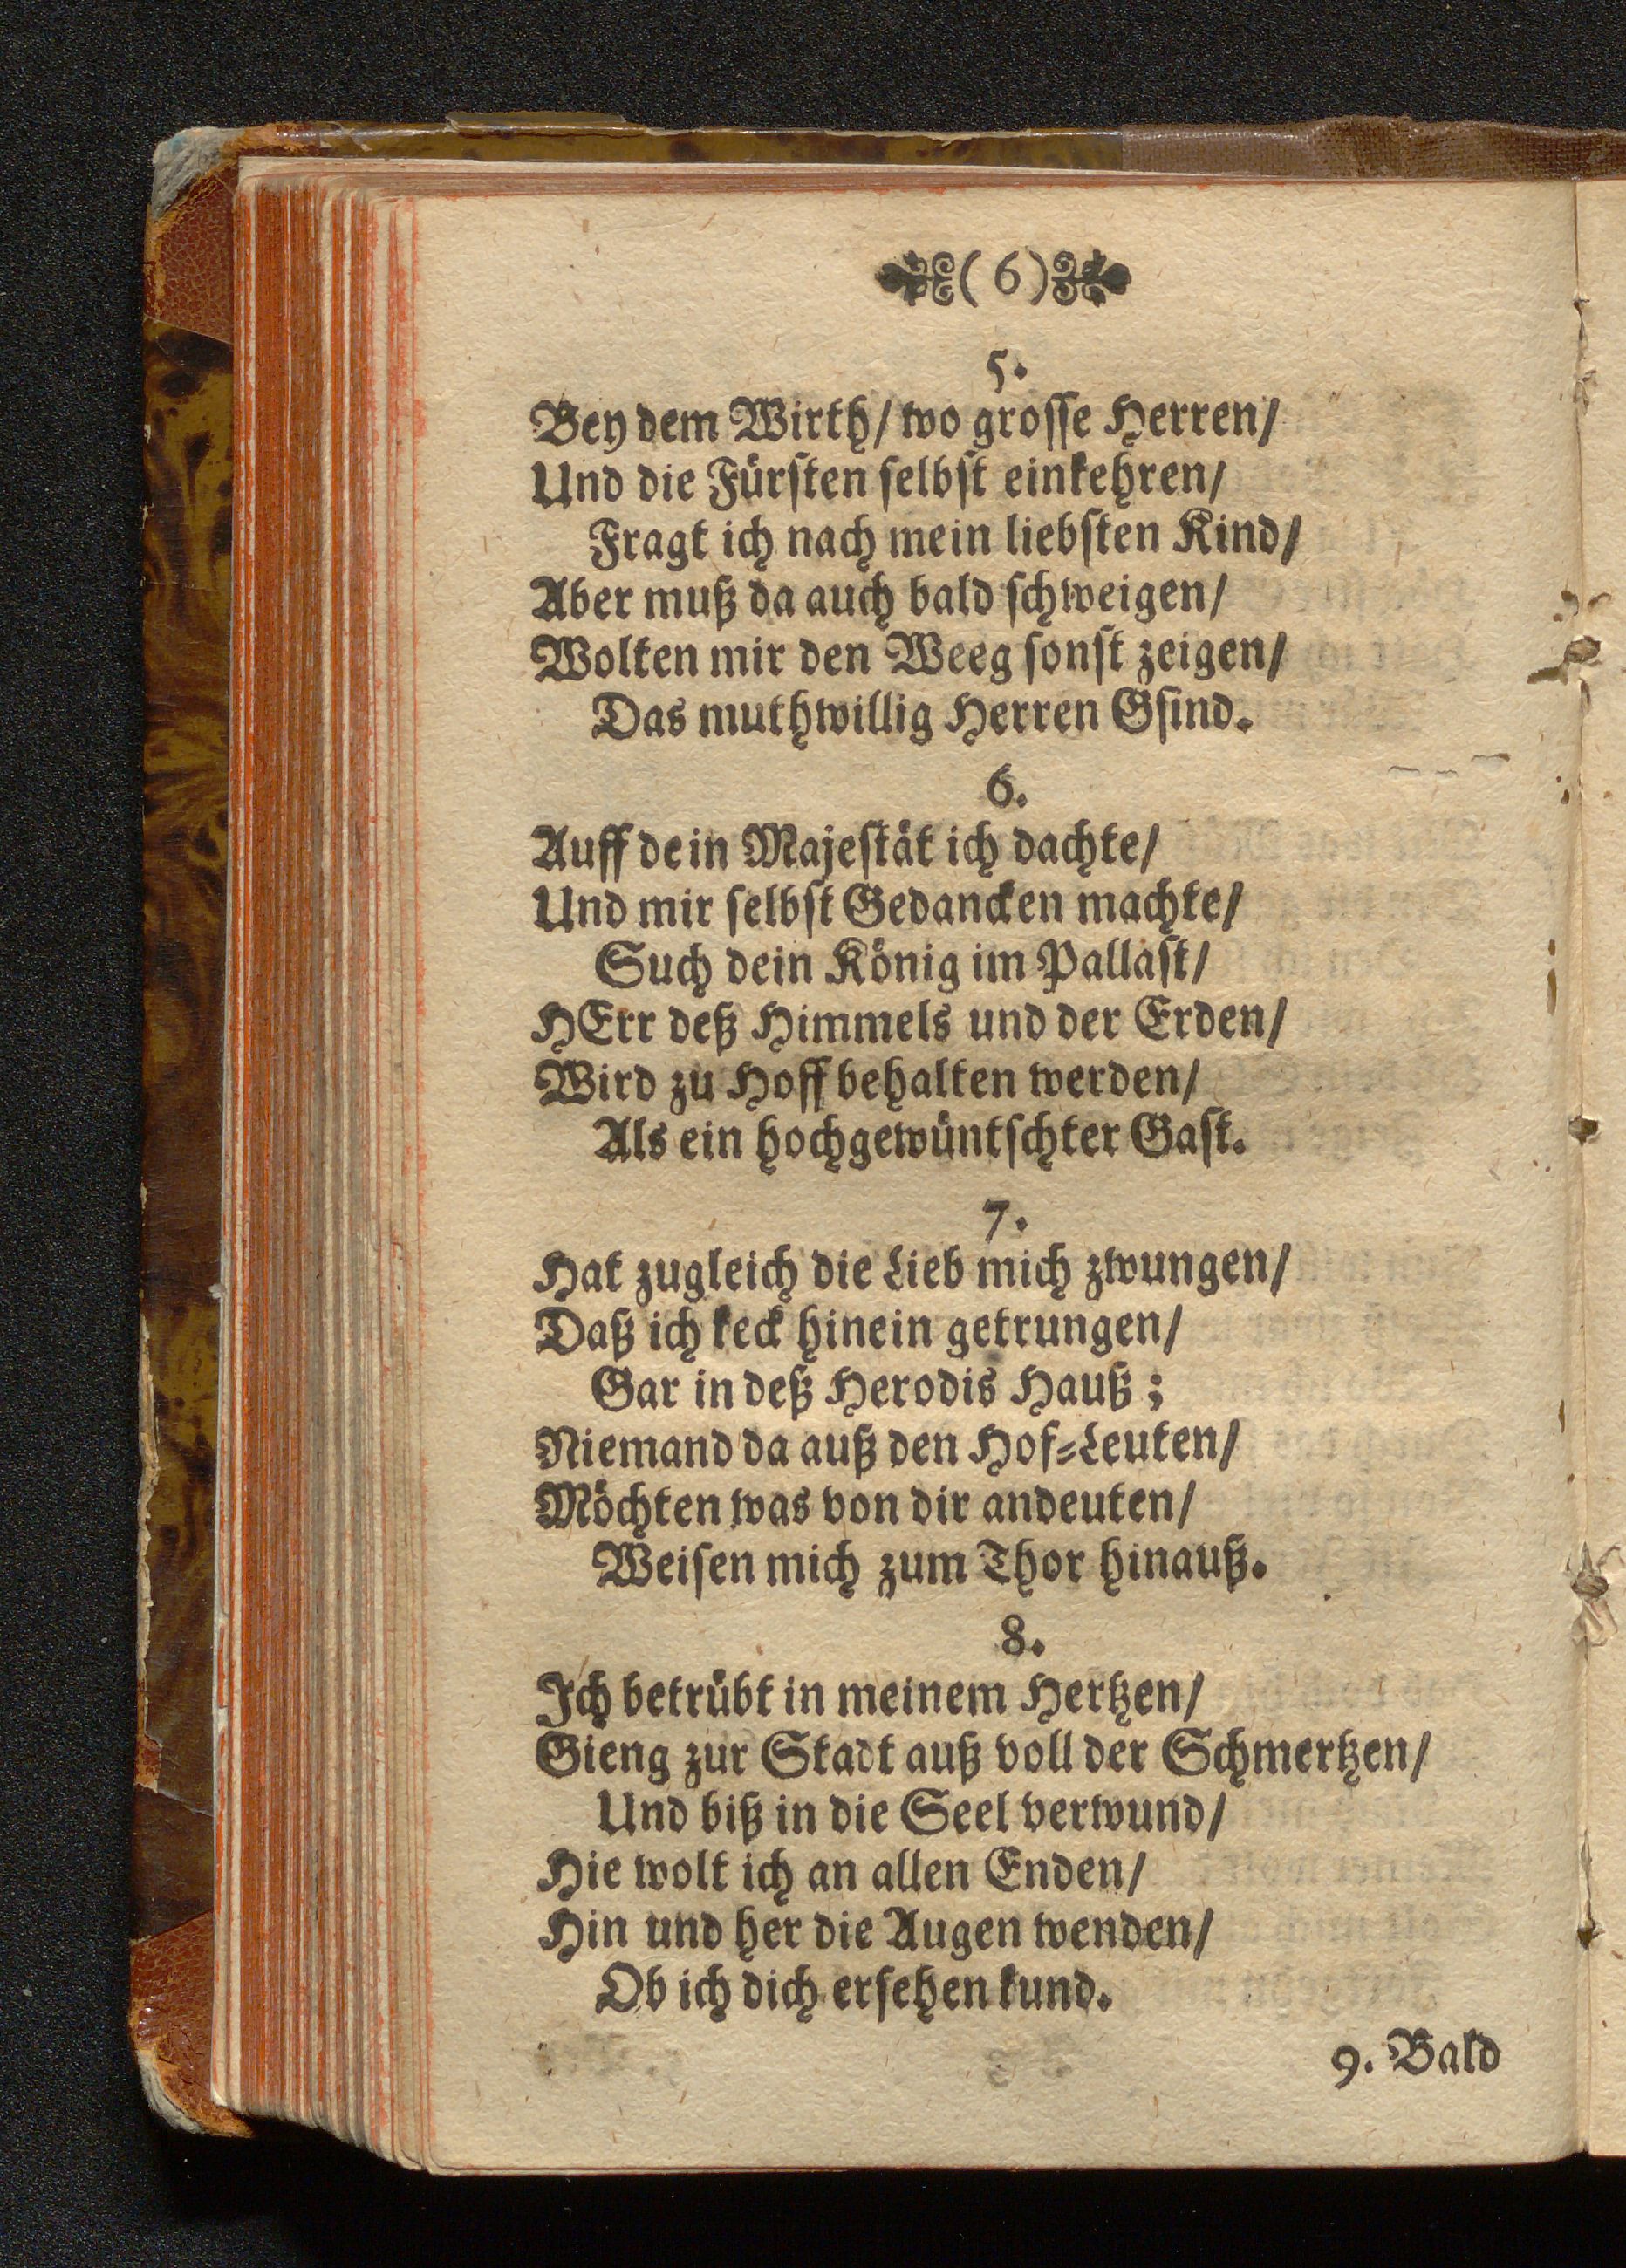 (6)
5.
Bey dem Wirth/ wo grosse Herren/
Und die Fürsten selbst einkehren/
Fragt ich nach mein liebsten Kind/
Aber muß da auch bald schweigen/
Wolten mir den Weeg sonst zeigen/
Das muthwillig Herren Gsind.
6.
Auff dein Majestät ich dachte/
Und mir selbst Gedancken machte/
Such dein König im Pallast/
HErr deß Himmels und der Erden/
Wird zu Hoff behalten werden/
Als ein hochgewüntschter Gast.
7.
Hat zugleich die Lieb mich zwungen/
Daß ich keck hinein getrungen/
Gar in deß Herodis Hauß;
Niemand da auß den Hof-Leuten/
Möchten was von dir andeuten/
Weisen mich zum Thor hinauß.
8.
Ich betrübt in meinem Hertzen/
Gieng zur Stadt auß voll der Schmertzen/
Und biß in die Seel verwund/
Hie wolt ich an allen Enden/
Hin und her die Augen wenden/
Ob ich dich ersehen kund.
9. Bald